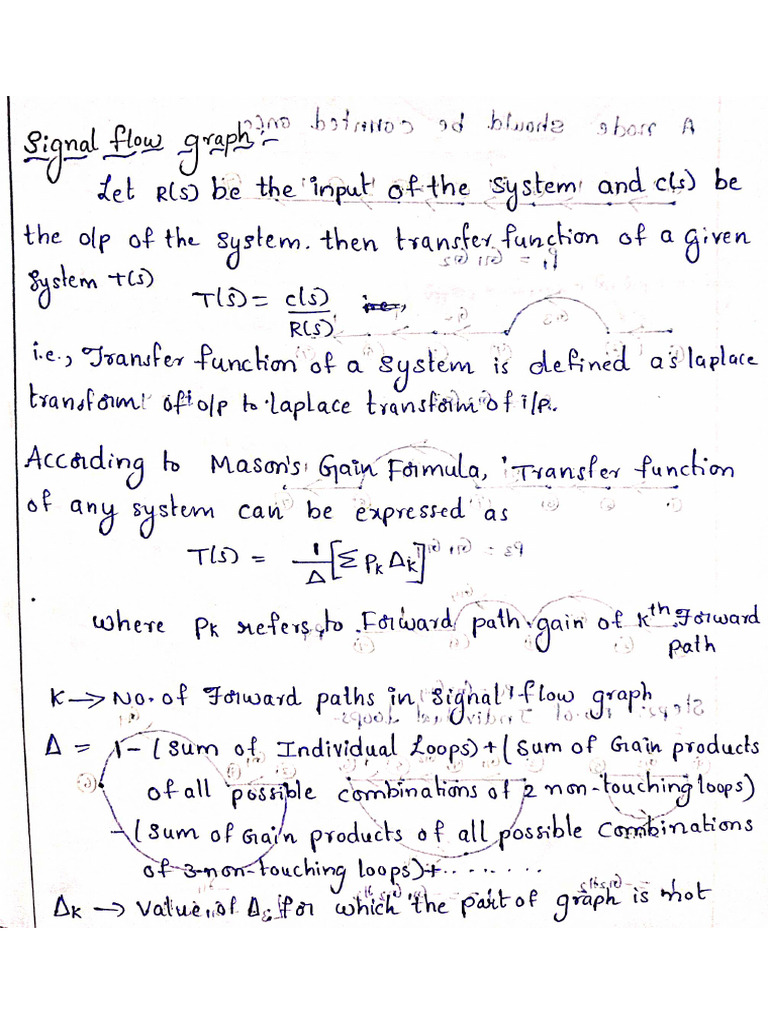 Signal flow graph:-
Let R(s) be the input of the system and c(s) be
the o/p of the system. then transfer function of a given
system T(s)
T(s) = c(s)/R(s)
i.e., Transfer function of a system is defined as laplace
transform of o/p to laplace transform of i/p.
According to Mason's Gain Formula, Transfer function
of any system can be expressed as
T(s) = 1/Δ [Σ Pk Δk]
where Pk refers to Forward path gain of Kth Forward
path
K → No. of Forward paths in signal flow graph
Δ = 1 - (sum of Individual Loops) + (sum of Gain products
of all possible combinations of 2 non-touching loops)
- (sum of Gain products of all possible combinations
of 3-non-touching loops) + ........
Δk → value of Δ, for which the part of graph is not